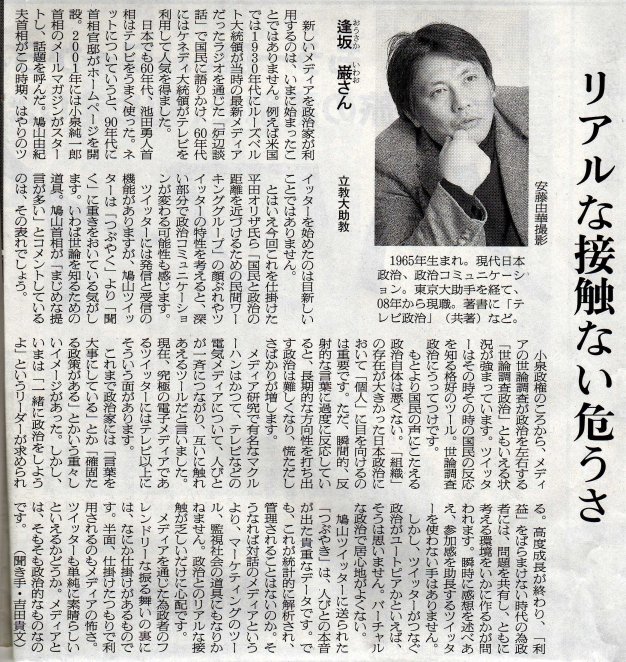 リアルな接触ない危うさ
安藤由華撮影
逢坂 巌さん
おうさか いわお
立教大助教
1965年生まれ。現代日本
政治、政治コミュニケーシ
ョン。東京大助手を経て、
08年から現職。著書に「テ
レビ政治」(共著)など。
新しいメディアを政治家が利
用するのは、いまに始まったこ
とではありません。例えば米国
では1930年代にルーズベル
ト大統領が当時の最新メディア
だったラジオを通じた「炉辺談
話」で国民に語りかけ、60年代
にはケネディ大統領がテレビを
利用して人気を得ました。
日本でも60年代、池田勇人首
相はテレビをうまく使った。ネ
ットについていうと、90年代に
首相官邸がホームページを開
設。2001年には小泉純一郎
首相のメールマガジンがスター
トし、話題を呼んだ。鳩山由紀
夫首相がこの時期、はやりのツ
イッターを始めたのは目新しい
ことではありません。
とはいえ今回これを仕掛けた
平田オリザ氏ら「国民と政治の
距離を近づけるための民間ワー
キンググループ」の顔ぶれやツ
イッターの特性を考えると、深
い部分で政治コミュニケーショ
ンが変わる可能性も感じます。
ツイッターには発信と受信の
機能がありますが、鳩山ツイッ
ターは「つぶやく」より「聞
く」に重きをおいている気がし
ます。いわば世論を知るための
道具。鳩山首相が「まじめな提
言が多い」とコメントしている
のは、その表れでしょう。
小泉政権のころから、メディ
アの世論調査が政治を左右する
「世論調査政治」ともいえる状
況が強まっています。ツイッタ
ーはその時その時の国民の反応
を知る格好のツール。世論調査
政治にうってつけです。
もとより国民の声にこたえる
政治自体は悪くない。「組織」
の存在が大きかった日本政治に
おいて「個人」に目を向けるの
は重要です。ただ、瞬間的、反
射的な言葉に過度に反応してい
ると、長期的な方向性を打ち出
す政治は難しくなり、慌ただし
さばかりが増します。
メディア研究で有名なマクル
ーハンはかつて、テレビなどの
電気メディアについて、人びと
が一斉につながり、互いに触れ
あえるツールだと言いました。
現在、究極の電子メディアであ
るツイッターにはテレビ以上に
そういう面があります。
これまで政治家には「言葉を
大事にしている」とか「確固た
る政策がある」とかいう重々し
いイメージがあった。しかし、
いまは「一緒に政治をしよう
よ」というリーダーが求められ
る。高度成長が終わり、「利
益」をばらまけない時代の為政
者には、問題を共有し、ともに
考える環境をいかに作るかが問
われます。瞬時に感想を述べあ
え、参加感を助長するツイッタ
ーを使わない手はありません。
しかし、ツイッターがつなぐ
政治がユートピアかといえば、
そうは思いません。バーチャル
な政治で居心地がよくない。
鳩山ツイッターに送られた
「つぶやき」は、人びとの本音
が出た貴重なデータです。で
も、これが統計的に解析され、
管理されることはないのか。そ
うなれば対話のメディアという
より、マーケティングのツー
ル、監視社会の道具にもなりか
ねません。政治とのリアルな接
触が乏しいだけに心配です。
メディアを通じた為政者のフ
レンドリーな振る舞いの裏に
は、なにか仕掛けがあるもので
す。半面、仕掛けたつもりで利
用されるのもメディアの怖さ。
ツイッターも単純に素晴らしい
といえるかどうか。メディアと
は、そもそも政治的なものなの
です。 (聞き手・吉田貴文)